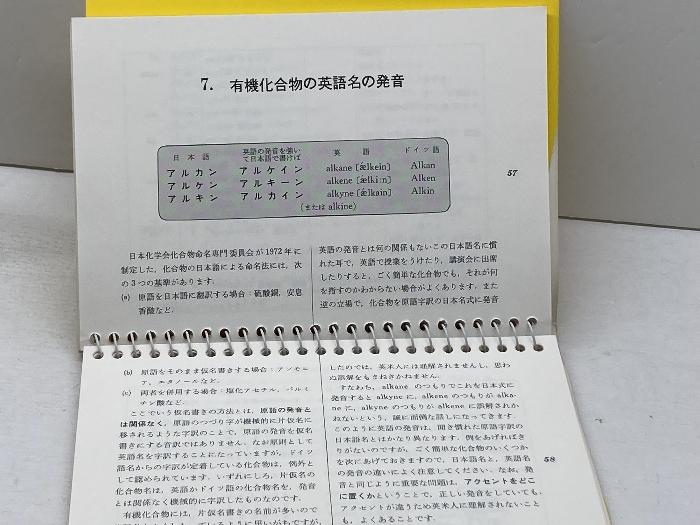 7. 有機化合物の英語名の発音
日本語 英語の発音を強いて日本語で書けば 英語 ドイツ語
アルカン アルケイン alkane [ǽlkein] Alkan
アルケン アルキーン alkene [ǽlkiːn] Alken
アルキン アルカイン alkyne [ǽlkain] Alkin
(または alkine)
57
日本化学会化合物命名専門委員会が1972年に
制定した,化合物の日本語による命名法には,次
の3つの基準があります.
(a) 原語を日本語に翻訳する場合:硫酸銅,安息
香酸など.
英語の発音とは何の関係もないこの日本語名に慣
れた耳で,英語で授業をうけたり,講演会に出席
したりすると,ごく簡単な化合物でも,それが何
を指すのかわからない場合がよくあります.また
逆の立場で,化合物を原語字訳の日本名式に発音
(b) 原語をそのまま仮名書きする場合:アンモニ
ア,エタノールなど.
(c) 両者を併用する場合:塩化アセチル,パルミ
チン酸など.
ここでいう仮名書きの方法とは,原語の発音と
は関係なく,原語のつづり字が機械的に片仮名に
移されるような字訳のことで,原語の発音を仮名
書きにする音訳ではありません.なお原則として
英語名を字訳することになっていますが,ドイツ
語名からの字訳が定着している化合物は,例外と
して認められています.いずれにしろ,片仮名の
化合物名は,英語かドイツ語の化合物名を,発音
とは関係なく機械的に字訳したものなのです.
有機化合物には,片仮名書きの名前が多いので
したのでは,英米人には理解されませんし,思わ
ぬ誤解をもまねきかねません.
すなわち,alkane のつもりでこれを日本式に
発音すると alkyne に,alkene のつもりが alka-
ne に,alkyne のつもりが alkene に誤解されか
ねないという,誠に面倒な話しになってきます.
このように英語の発音は,聞き慣れた原語字訳の
日本語名とはかなり異なります.例をあげればき
りがないのですが,ごく簡単な化合物のいくつか
を次にあげておきますので,日本語名と,英語名
の発音の違いによく注意してください.なお,発
音と同じように重要な問題は,アクセントをどこ
に置くかということで,正しい発音をしていても,
アクセントが違うため英米人に理解されないこと
も,よくあることです.
58